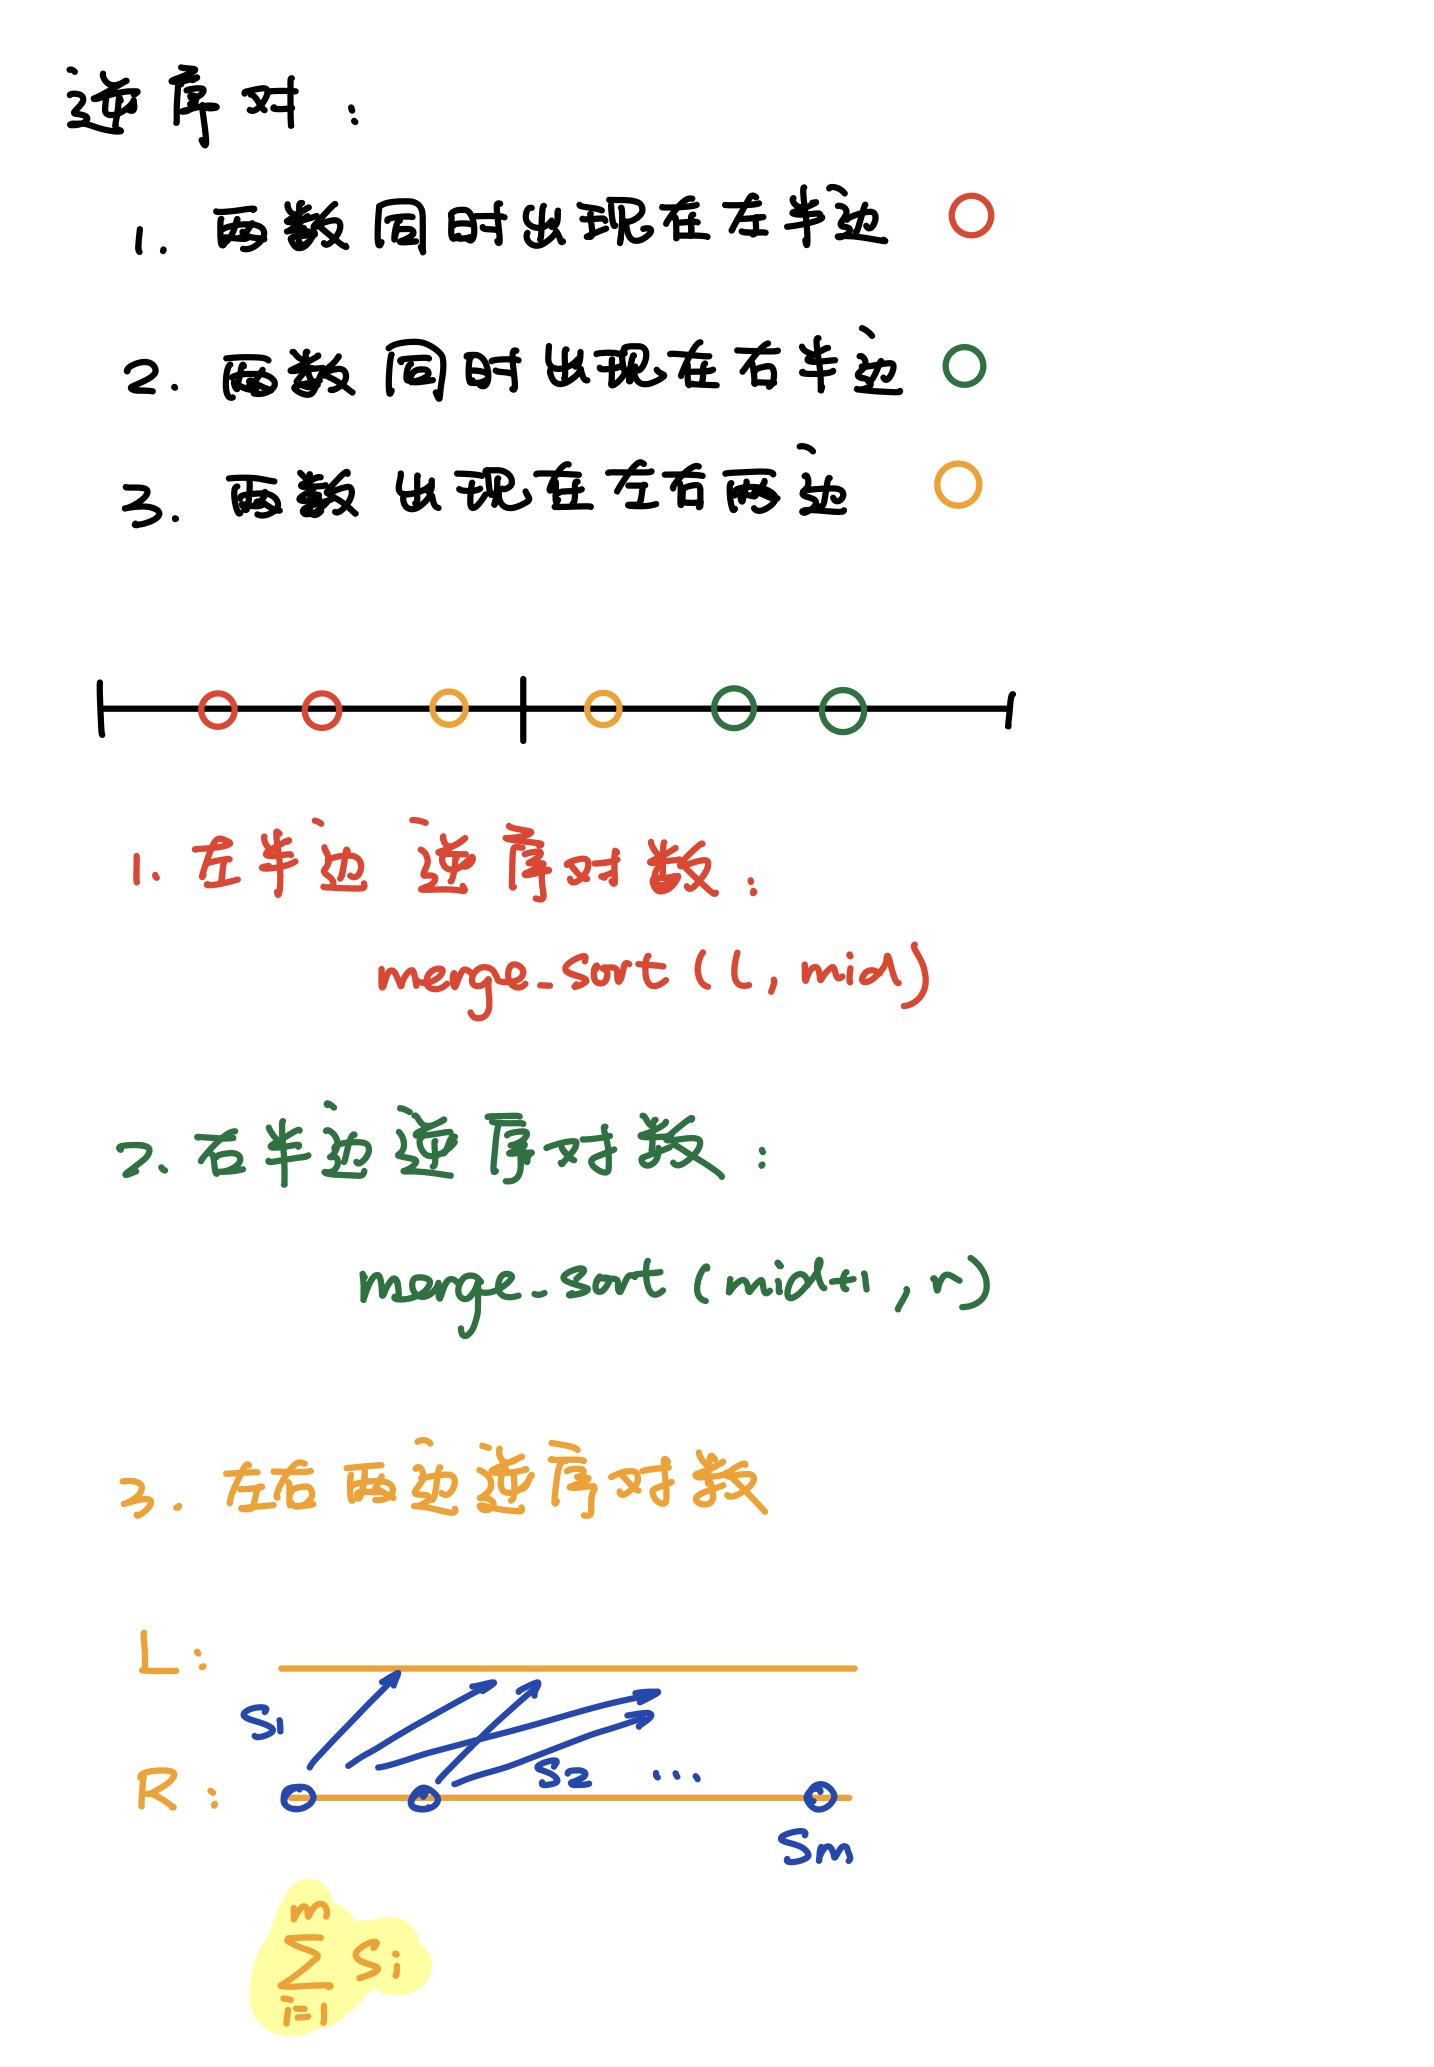 逆序对：
1. 两数同时出现在左半边
2. 两数同时出现在右半边
3. 两数出现在左右两边
1. 左半边逆序对数：
merge_sort (l, mid)
2. 右半边逆序对数：
merge_sort (mid+1, r)
3. 左右两边逆序对数
L:
S1
S2 ...
R:
Sm
m
∑ Si
i=1